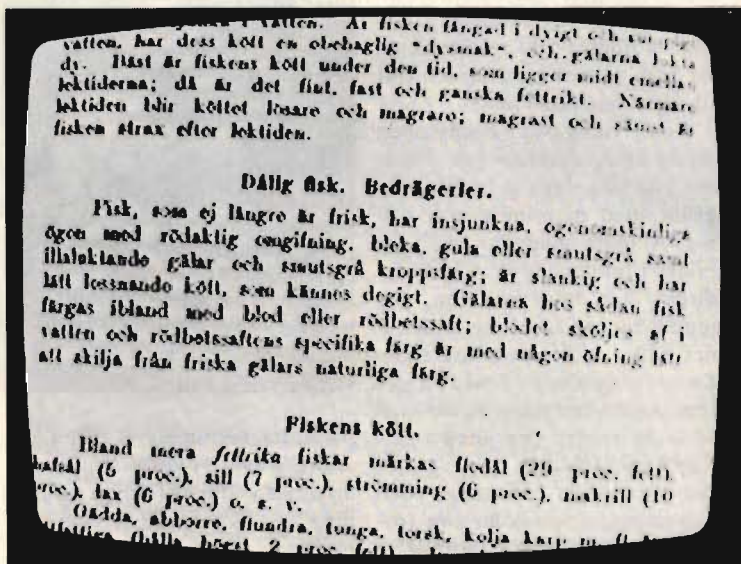 vatten. Är fisken fångad i dyigt och
vatten, har dess kött en obehaglig "dysmak", och gälarna lukta
dy. Bäst är fiskens kött under den tid, som ligger midt emellan
lektiderna; då är det fint, fast och ganska fettrikt. Närmare
lektiden blir köttet lösare och magrare; magrast och sämst är
fisken strax efter lektiden.
Dålig fisk. Bedrägerier.
Fisk, som ej längre är frisk, har insjunkna, ogenomskinliga
ögon med rödaktig omgifning, bleka, gula eller smutsgrå samt
illaluktande gälar och smutsgrå kroppsfärg; är slankig och har
lätt lossnande kött, som kännes degigt. Gälarna hos sådan fisk
färgas ibland med blod eller rödbetssaft; blodet sköljes af i
vatten och rödbetssaftens specifika färg är med någon öfning lätt
att skilja från friska gälars naturliga färg.
Fiskens kött.
Bland mera fettrika fiskar märkas flodål (29 proc. fett),
hafsål (5 proc.), sill (7 proc.), strömming (6 proc.), makrill (10
proc.), lax (6 proc.) o. s. v.
Gädda, abborre, flundra, tunga, torsk, kolja karp m. fl.
(hålla högst 2 proc. fett)